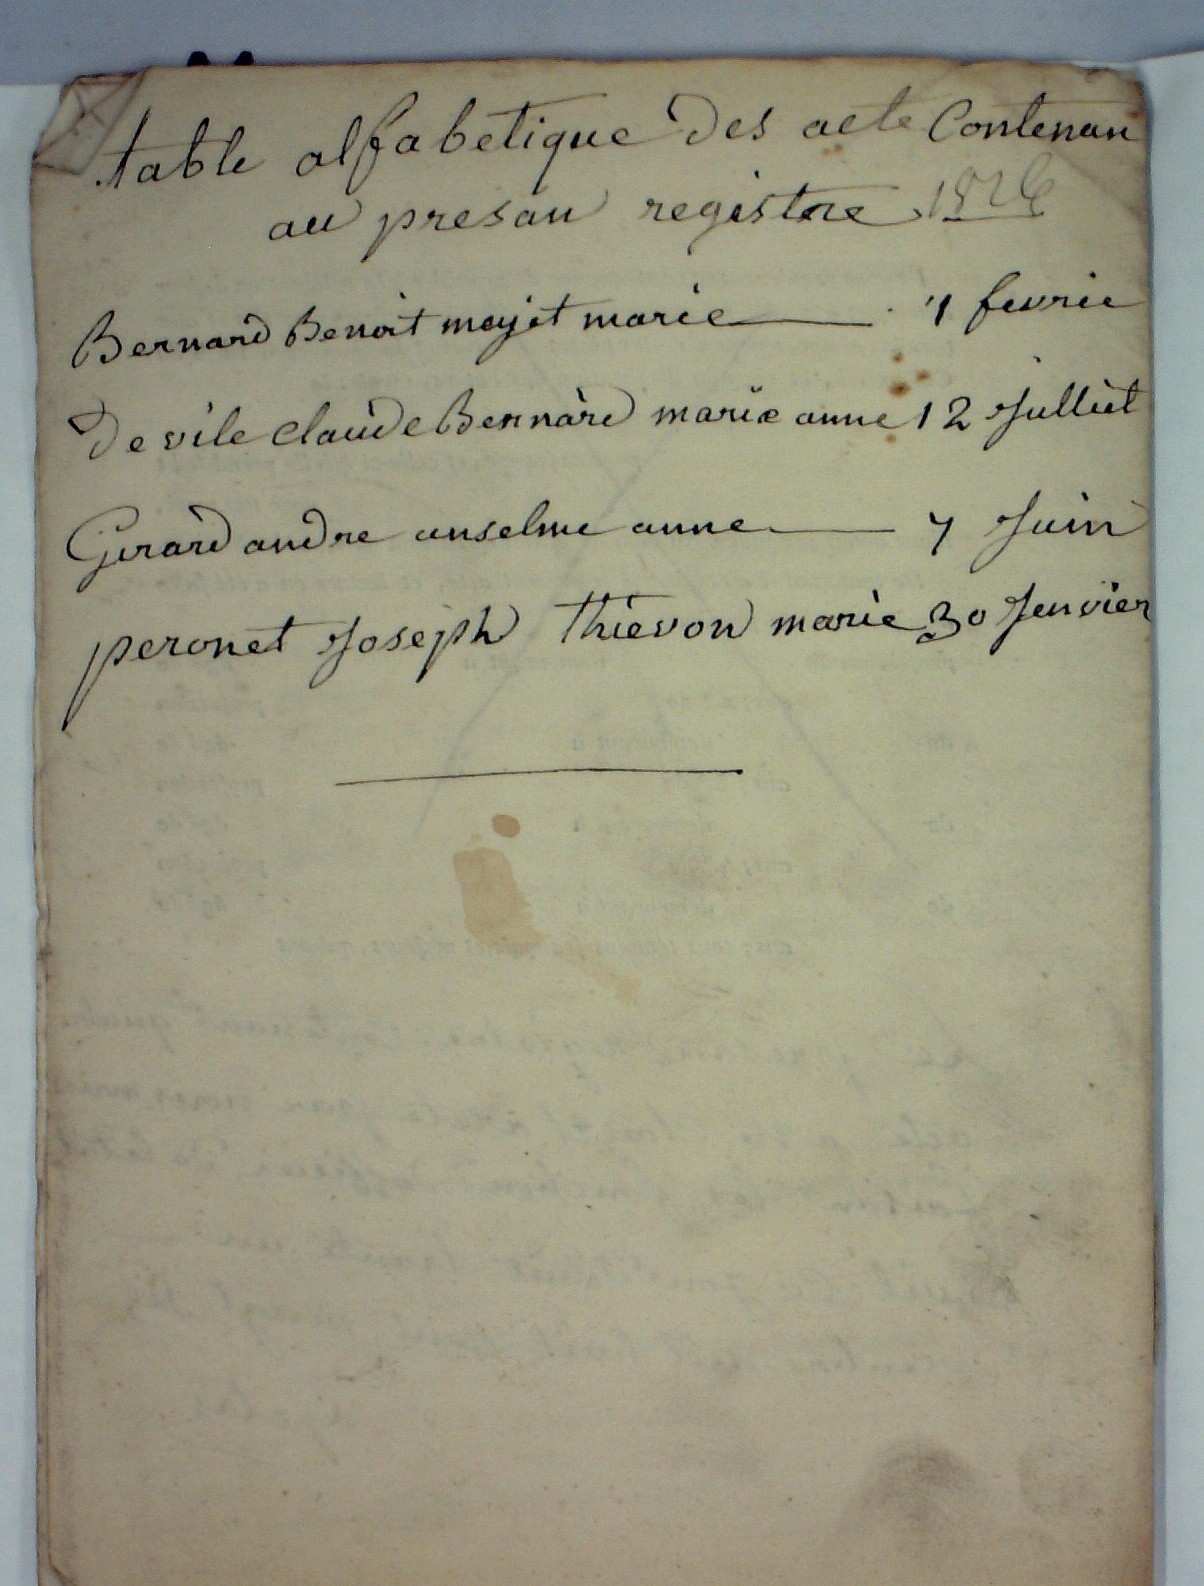 table alfabetique des acte Contenan
au presan registre 1826
Bernard Benoit mayet marie 7 fevrie
De vile claude Bernard marie anne 12 Julliet
Girard andre anselme anne 7 Juin
peronet Joseph Thievon marie 30 Jenvier